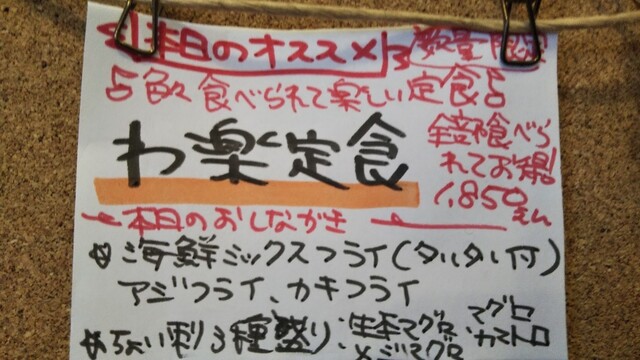 本日のオススメ 数量限定
色々食べられて楽しい定食
わ楽定食
全部食べら
れてお得!
1,850えん
本日のおしながき
海鮮ミックスフライ(タルタル付)
アジフライ、カキフライ
ちょい刺3種盛り:生本マグロ、マグロ
カマトロ
メジマグロ